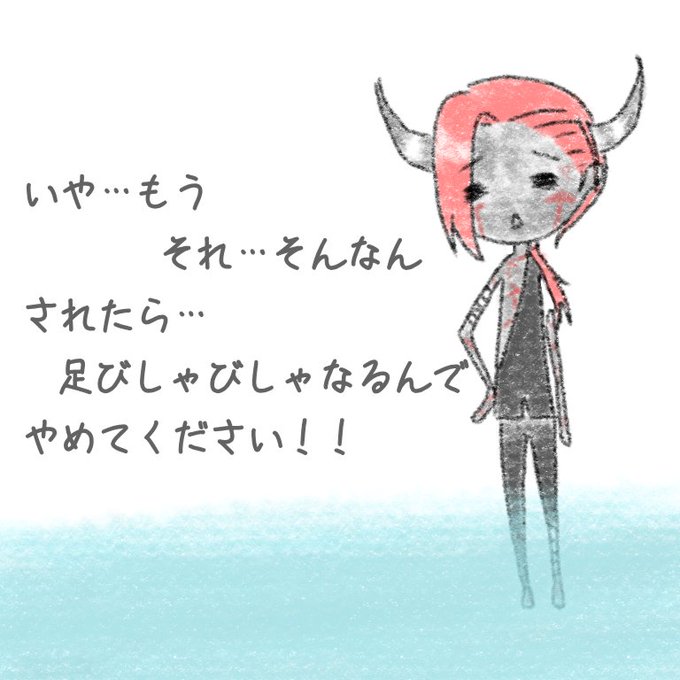 いや…もう
それ…そんなん
されたら…
足びしゃびしゃなるんで
やめてください！！